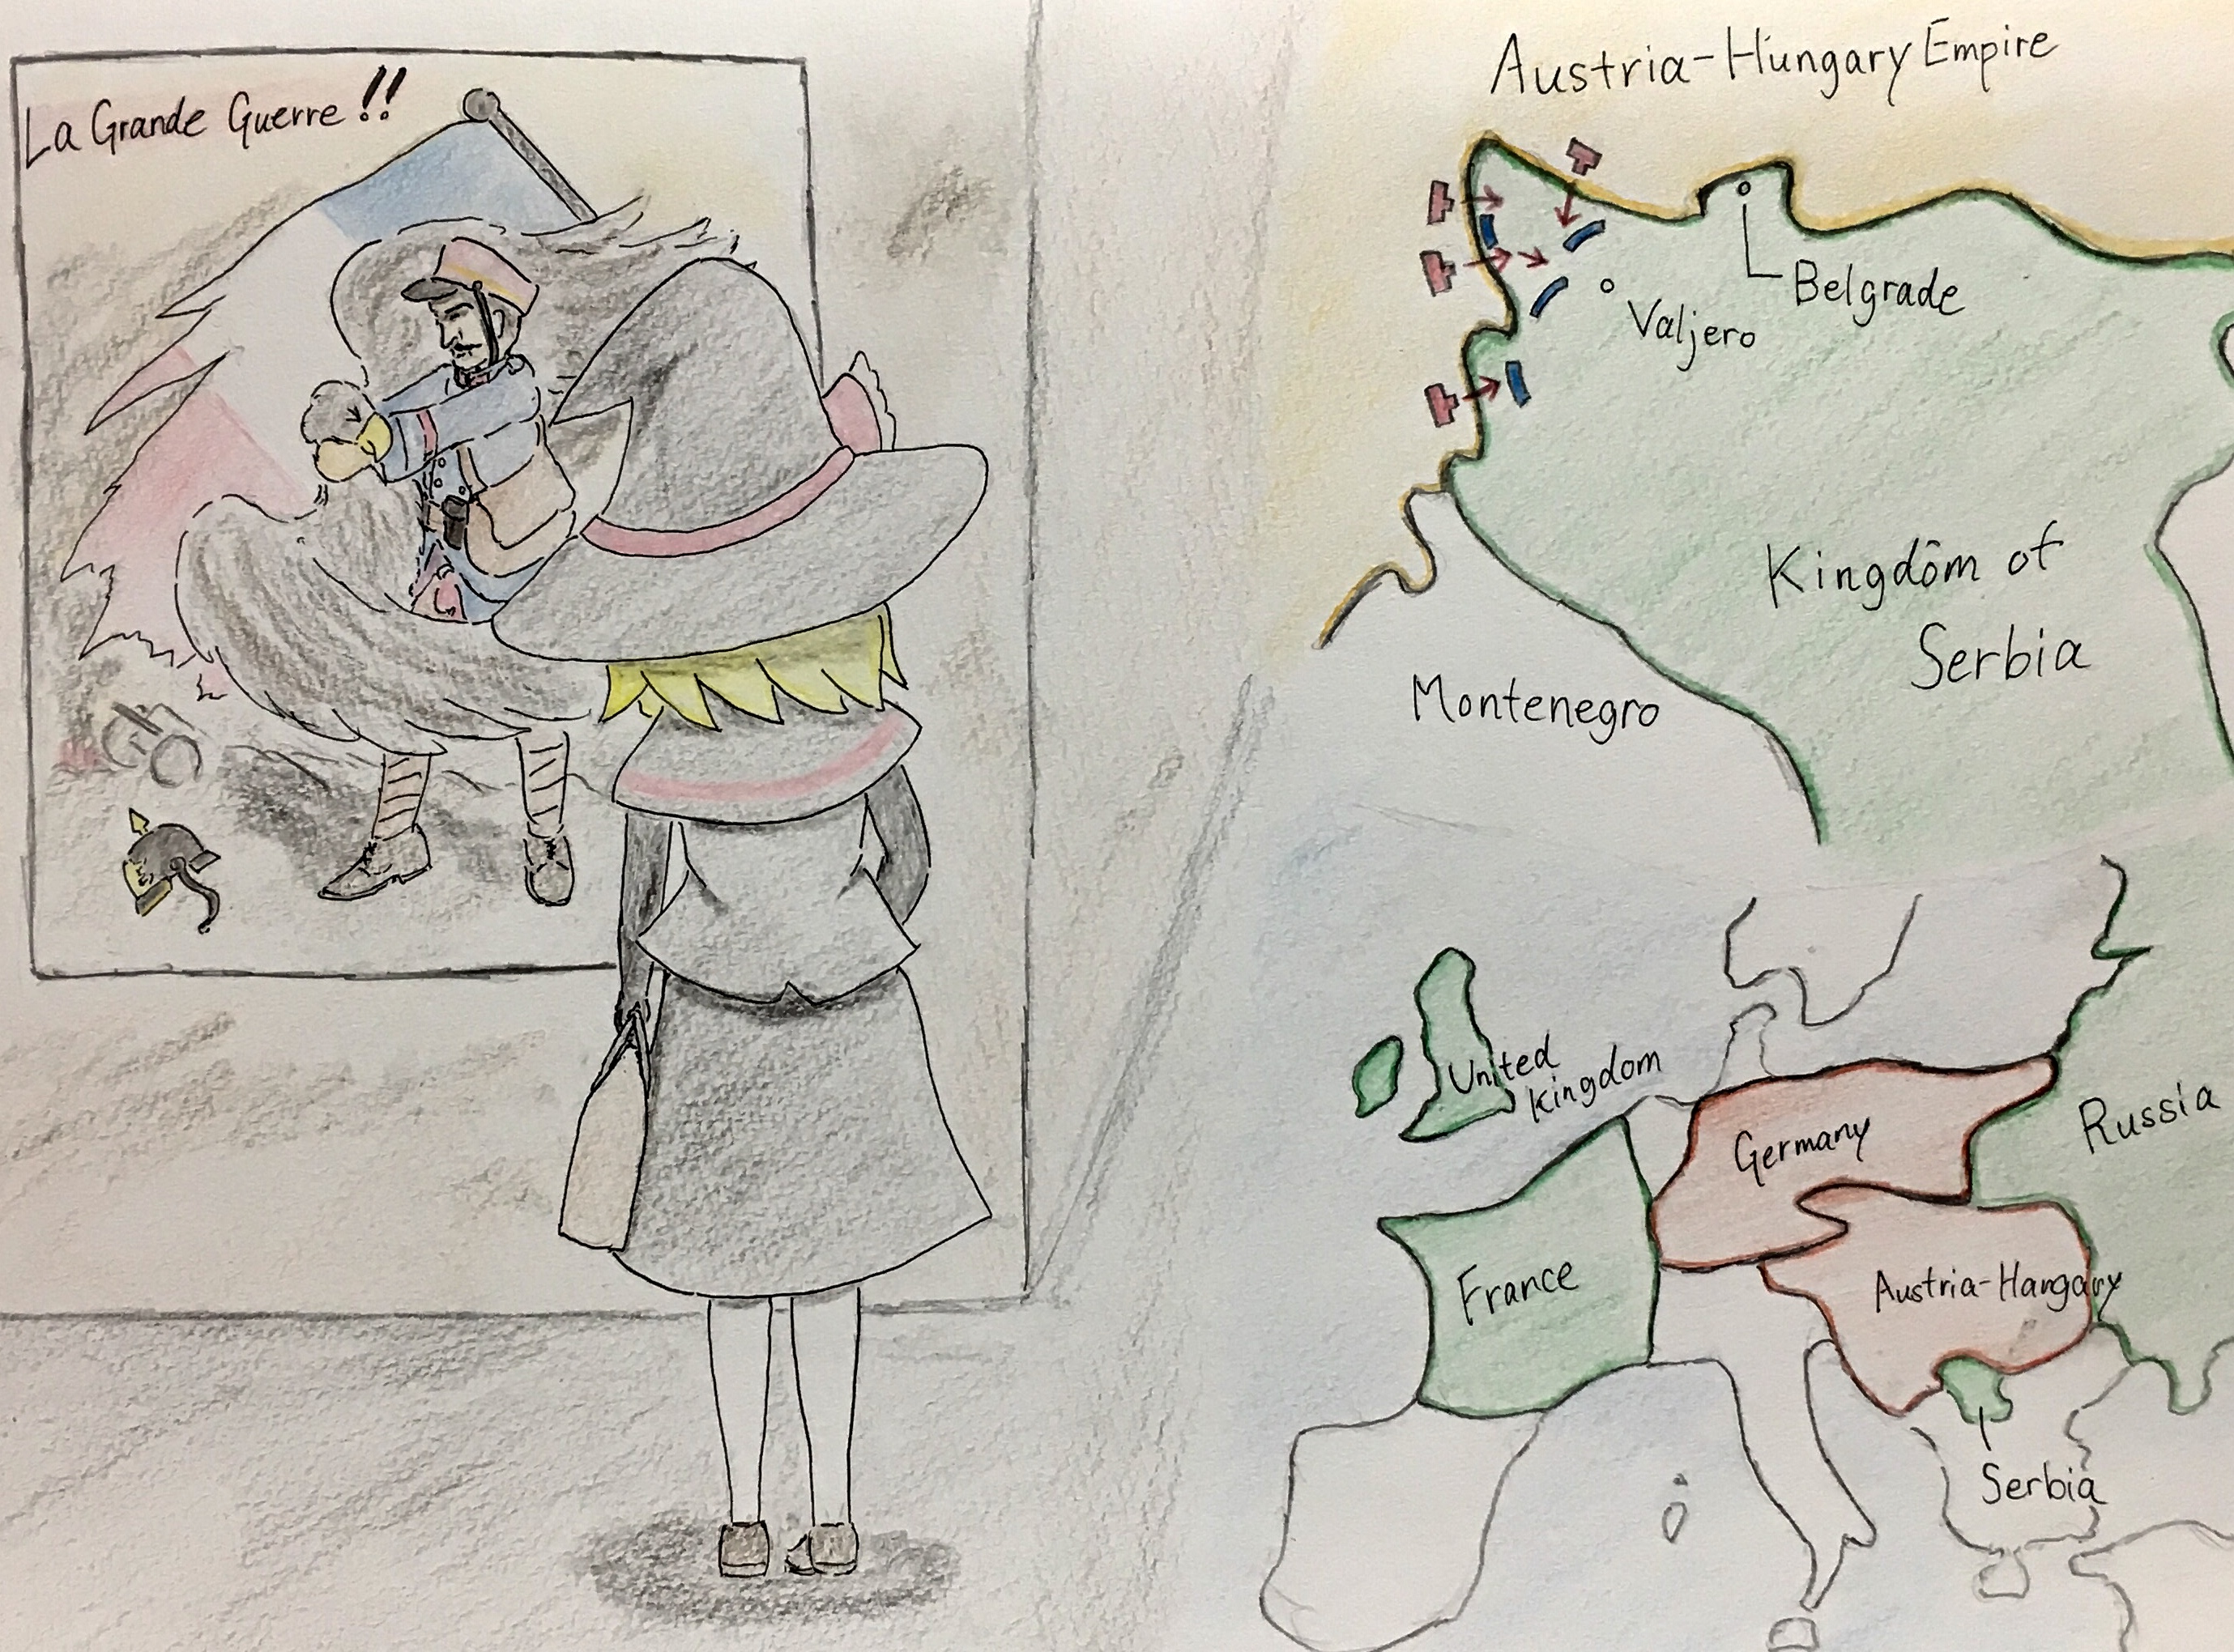 La Grande Guerre!!
Austria-Hungary Empire
Belgrade
Valjero
Kingdom of
Serbia
Montenegro
United
Kingdom
Russia
Germany
France
Austria-Hangary
Serbia